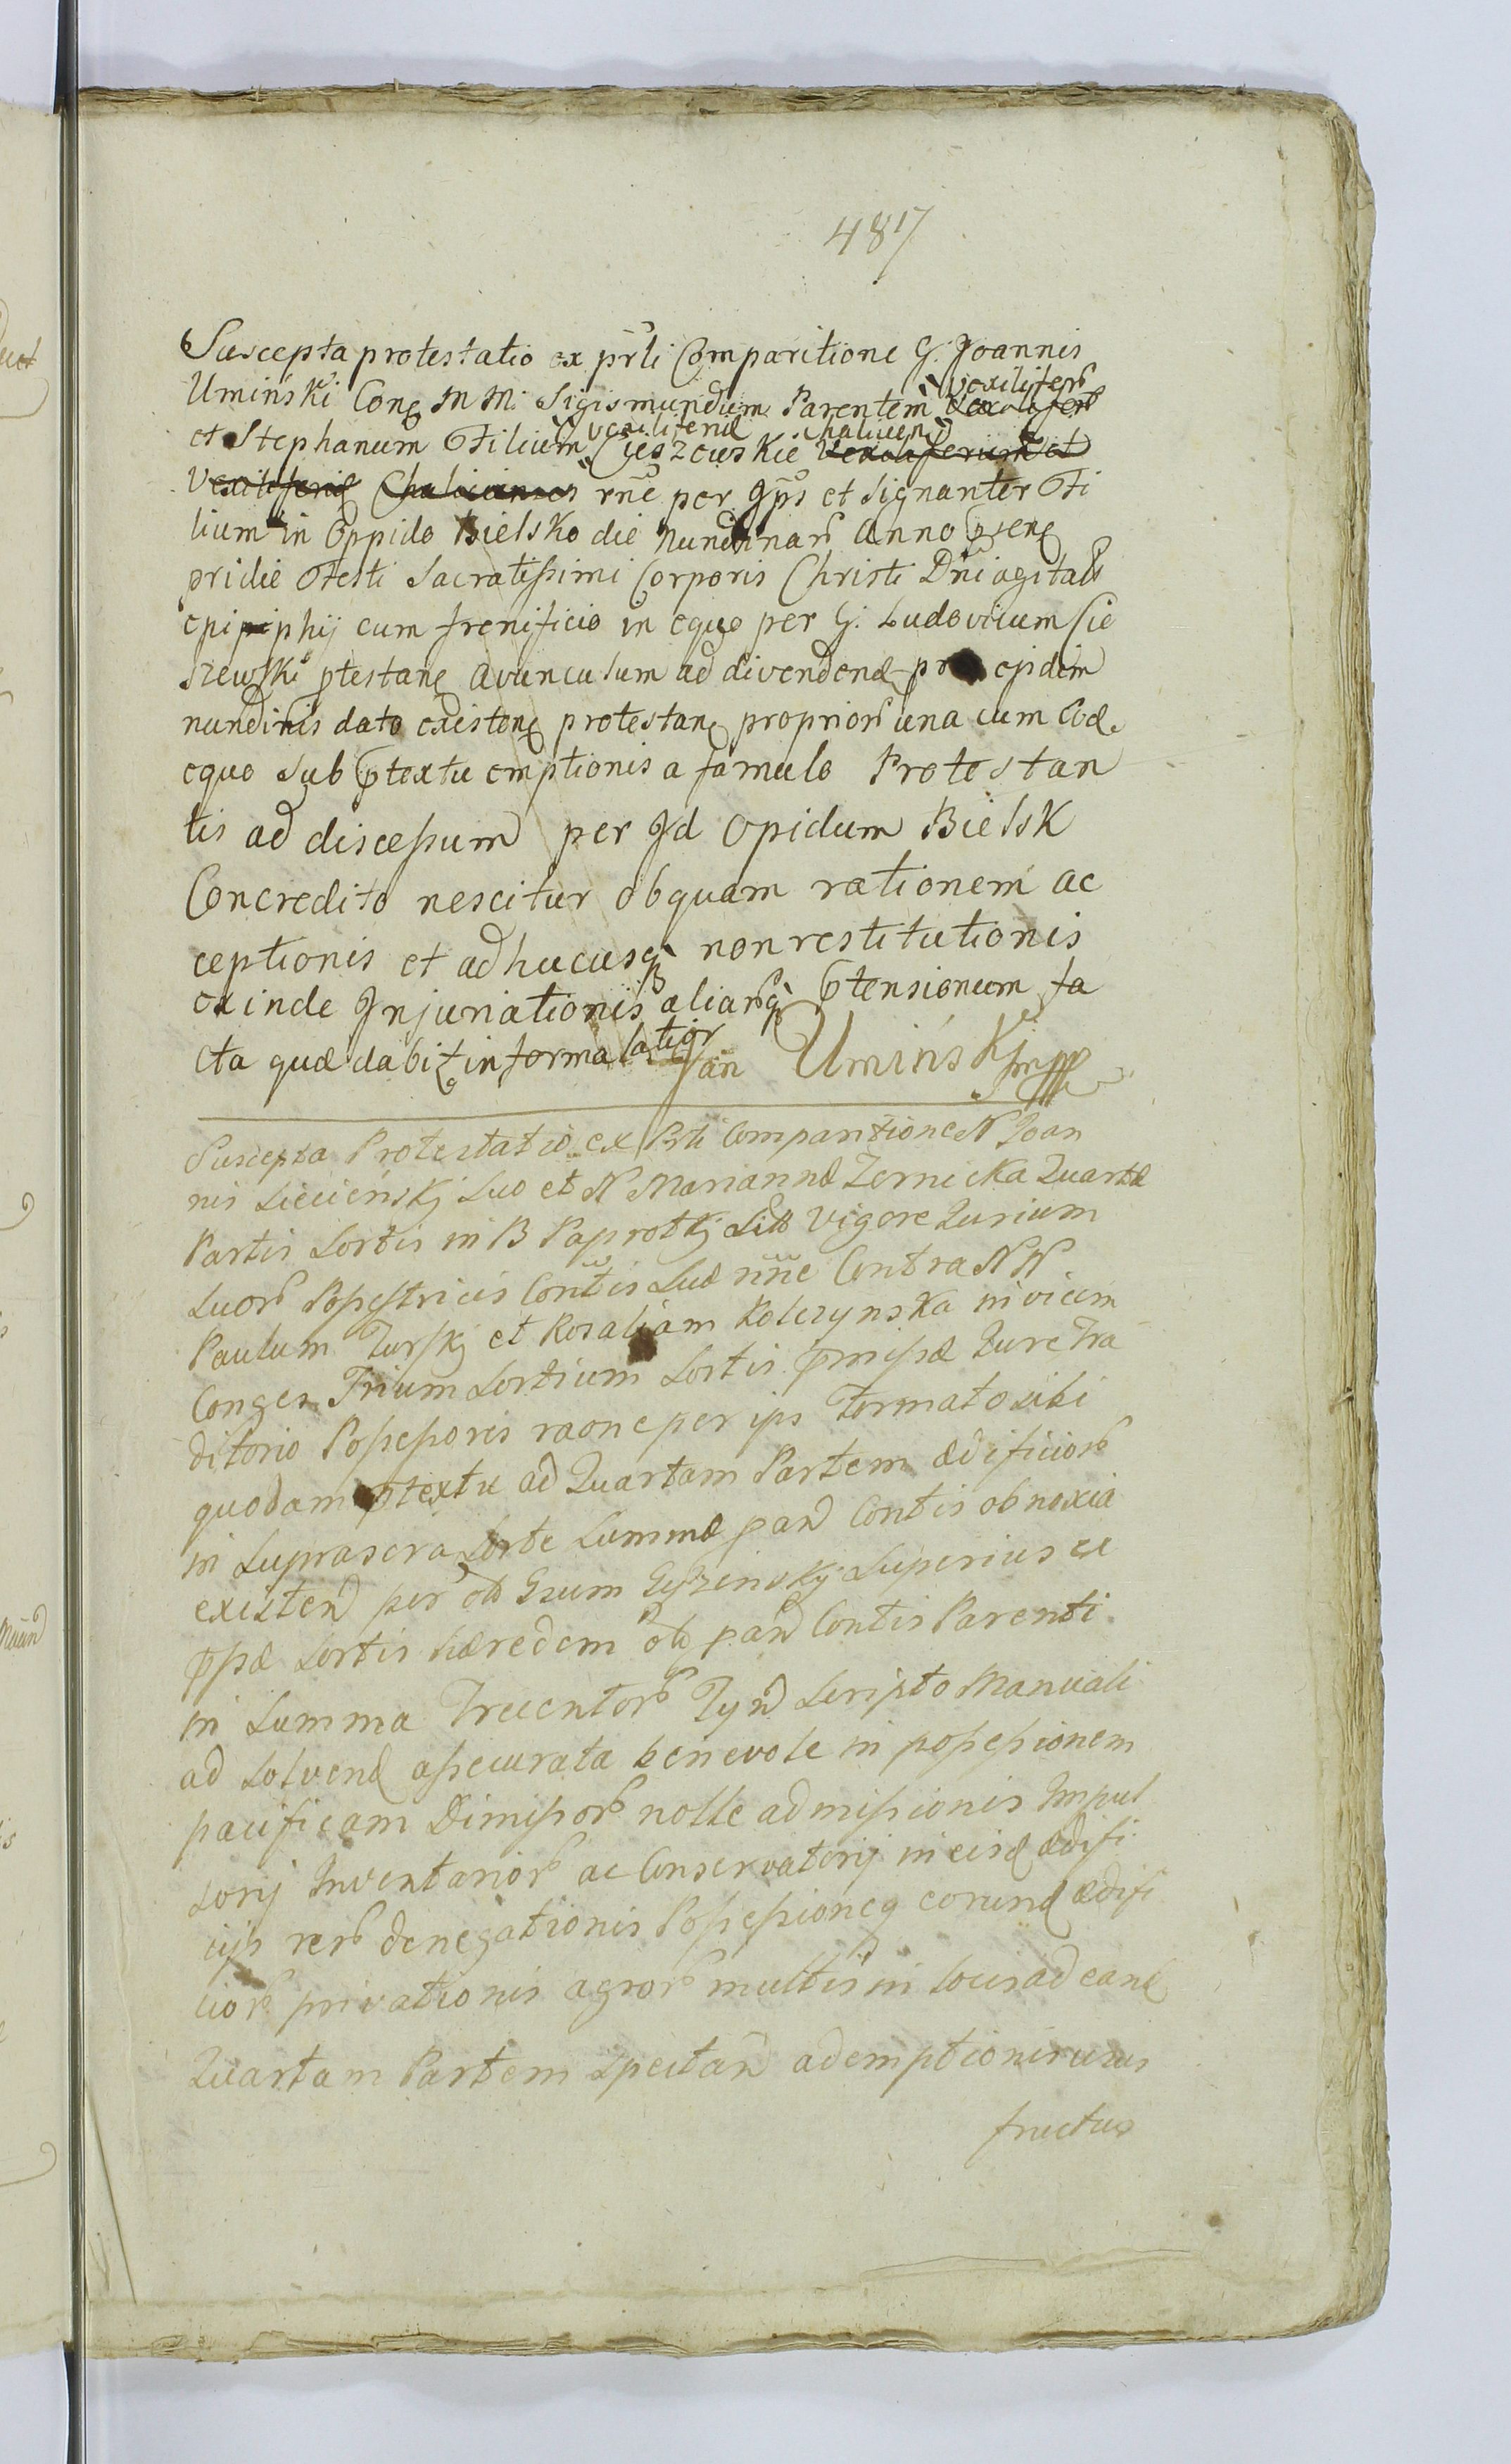 487
Suscepta protestatio ex prti Comparitione G. Joannis
Uminski Cong M M: Sigismundum Parentem vexilifer
et Stephanum Filium vexiliferid Cieszewskie chalicen
rne per Jps et signanter Fi
lium in Oppido Bielsko die nundinar anno pseng
pridie Festi Sacratissimi Corporis Christi Dni agitat
epipiphij cum frenificio in equo per G. Ludovicum Cie
szewski ptestang avunculum ad divendend pro ejsdem
nundinis dato existeng protestang proprior una cum eod
equo sub ptextu emptionis a famulo Protestan
tis ad discessum per Jd Opidum Bielsk
Concredito nescitur ob quam rationem ac
ceptionis et adhucusq nonrestitutionis
exinde Injuriationis aliarq ptensionum fa
cta quæ dabit in forma latior Jan Uminski mpp
Suscepta Protestatio ex Prti Comparitione N Joan
nis Liecienskj suo et N Mariannæ Zernicka Quartæ
Partis Sortis in B Paprotkj Vigore Jurium
Suor Possestricis Contis suæ nne Contra N N
Paulum Turskj et Rosaliam Kolczynska invicem
Conges Trium Sortium Sortis pmissæ Jure Tra
ditorio Possessores raone per ips formato sibi
quodam ptextu ad Quartam Partem ædificior
in suprascra Sorte Summæ pan Contis obnoxia
existen per olb superius ex
pssæ Sortis hæredem olb pan Contis Parenti
in Summa Trecentor Tyn Scripto Manuali
ad solvend assecurata benevole in possessionem
pacificam Dimissor nolle admissionis Impul
sorij Inventarior ac Conservatorij in eisd ædifi
cijs rer denegationis Possessioneq eorund ædifi
cior privationis agror multis in locis ad eand
Quartam Partem spectan ademptionis usus
fructus